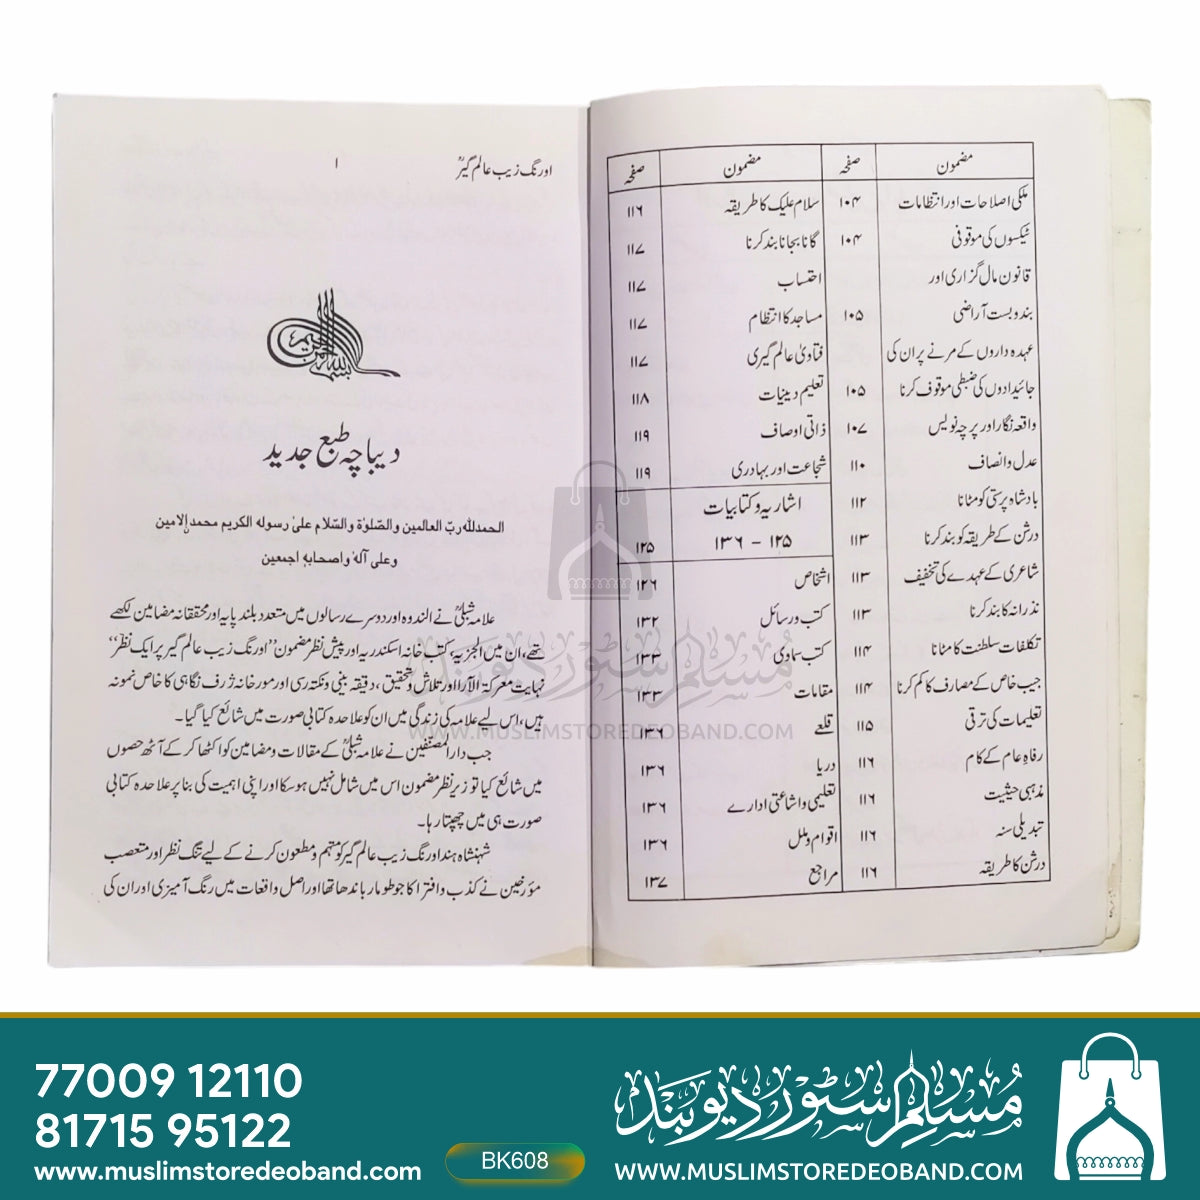 مضمون صفحہ مضمون صفحہ
ملکی اصلاحات اور انتظامات ۱۰۴
ٹیکسوں کی موقوفی ۱۰۴
قانون مال گزاری اور
بندوبست آراضی ۱۰۵
عہدہ داروں کے مرنے پر ان کی
جائیدادوں کی ضبطی موقوف کرنا ۱۰۵
واقعہ نگار اور پرچہ نویس ۱۰۷
عدل و انصاف ۱۱۰
بادشاہ پرستی کو مٹانا ۱۱۲
درشن کے طریقہ کو بند کرنا ۱۱۳
شاعری کے عہدے کی تخفیف ۱۱۳
نذرانہ کا بند کرنا ۱۱۳
تکلفات سلطنت کا مٹانا ۱۱۴
جیب خاص کے مصارف کا کم کرنا ۱۱۴
تعلیمات کی ترقی ۱۱۵
رفاہ عام کے کام ۱۱۶
مذہبی حیثیت ۱۱۶
تبدیلی سنہ ۱۱۶
درشن کا طریقہ ۱۱۶
سلام علیک کا طریقہ ۱۱۶
گانا بجانا بند کرنا ۱۱۷
احتساب ۱۱۷
مساجد کا انتظام ۱۱۷
فتاویٰ عالم گیری ۱۱۷
تعلیم دینیات ۱۱۸
ذاتی اوصاف ۱۱۹
شجاعت اور بہادری ۱۱۹
اشاریہ و کتابیات
۱۲۵ – ۱۳۶ ۱۲۵
اشخاص ۱۲۶
کتب و رسائل ۱۳۲
کتب سماوی ۱۳۳
مقامات ۱۳۳
قلعے ۱۳۶
دریا ۱۳۶
تعلیمی و اشاعتی ادارے ۱۳۶
اقوام و ملل ۱۳۶
مراجع ۱۳۷
اورنگ زیب عالم گیرؒ ۱
دیباچہ طبع جدید
الحمدللہ ربّ العالمین والصّلوٰۃ والسّلام علیٰ رسولہ الکریم محمد نِ الامین
وعلی آلہٖ واصحابہٖ اجمعین
علامہ شبلیؒ نے الندوہ اور دوسرے رسالوں میں متعدد بلند پایہ اور محققانہ مضامین لکھے
تھے، ان میں الجزیہ، کتب خانہ اسکندریہ اور پیش نظر مضمون ’’اورنگ زیب عالم گیر پر ایک نظر‘‘
نہایت معرکۃ الآرا اور تلاش و تحقیق، دقیقہ بینی و نکتہ رسی اور مورخانہ ژرف نگاہی کا خاص نمونہ
ہیں، اس لیے علامہ کی زندگی میں ان کو علاحدہ کتابی صورت میں شائع کیا گیا۔
جب دارالمصنفین نے علامہ شبلیؒ کے مقالات و مضامین کو اکٹھا کرکے آٹھ حصوں
میں شائع کیا تو زیر نظر مضمون اس میں شامل نہیں ہوسکا اور اپنی اہمیت کی بنا پر علاحدہ کتابی
صورت ہی میں چھپتا رہا۔
شہنشاہ ہند اورنگ زیب عالم گیر کو متہم و مطعون کرنے کے لیے تنگ نظر اور متعصب
مؤرخین نے کذب و افترا کا جو طومار باندھا تھا اور اصل واقعات میں رنگ آمیزی اور ان کی
مسلم سٹور دیوبند
WWW.MUSLIMSTOREDEOBAND.COM
77009 12110
81715 95122
www.muslimstoredeoband.com
BK608
مسلم سٹور دیوبند
WWW.MUSLIMSTOREDEOBAND.COM